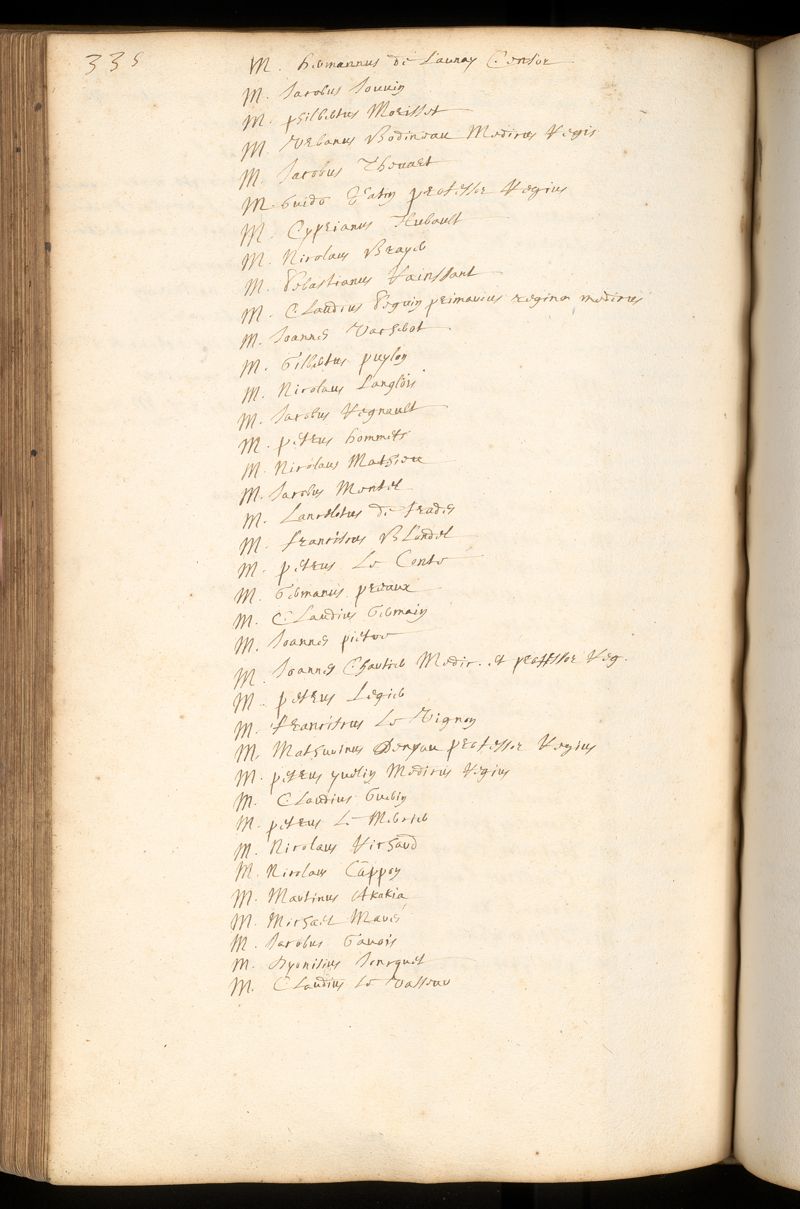 335
M. Hermannus de Launay Censor
M. Jacobus Jouvin
M. Philbertus Morisset
M. Urbanus Bodineau Medicus Regis
M. Jacobus Thevart
M. Guido Patin professor Regius
M. Cyprianus Hubault
M. Nicolaus Brayer
M. Sebastianus Rainssant
M. Claudius Seguin primarius reginae medicus
M. Joannes
M. Gilbertus Puylon
M. Nicolaus Langlois
M. Jacobus Regnault
M. Petrus hommets
M. Nicolaus Mathieu
M. Jacobus Mentel
M. Lancelotus de frades
M. franciscus Blondel
M. Petrus Le Conte
M. Germanus Preaux
M. Claudius Germain
M. Joannes pietre
M. Joannes Chartier Medic. et professor Reg.
M. Petrus Legier
M. franciscus Le Vignon
M. Mathurinus Denyau professor Regius
M. petrus yvelin Medicus Regius
M. Claudius Guerin
M. petrus Le Mercier
M. Nicolaus Richard
M. Nicolaus Cappon
M. Martinus Akakia
M. Michael Marès
M. Jacobus Gavois
M. Dyonisius Joncquet
M. Claudius Le Vasseur